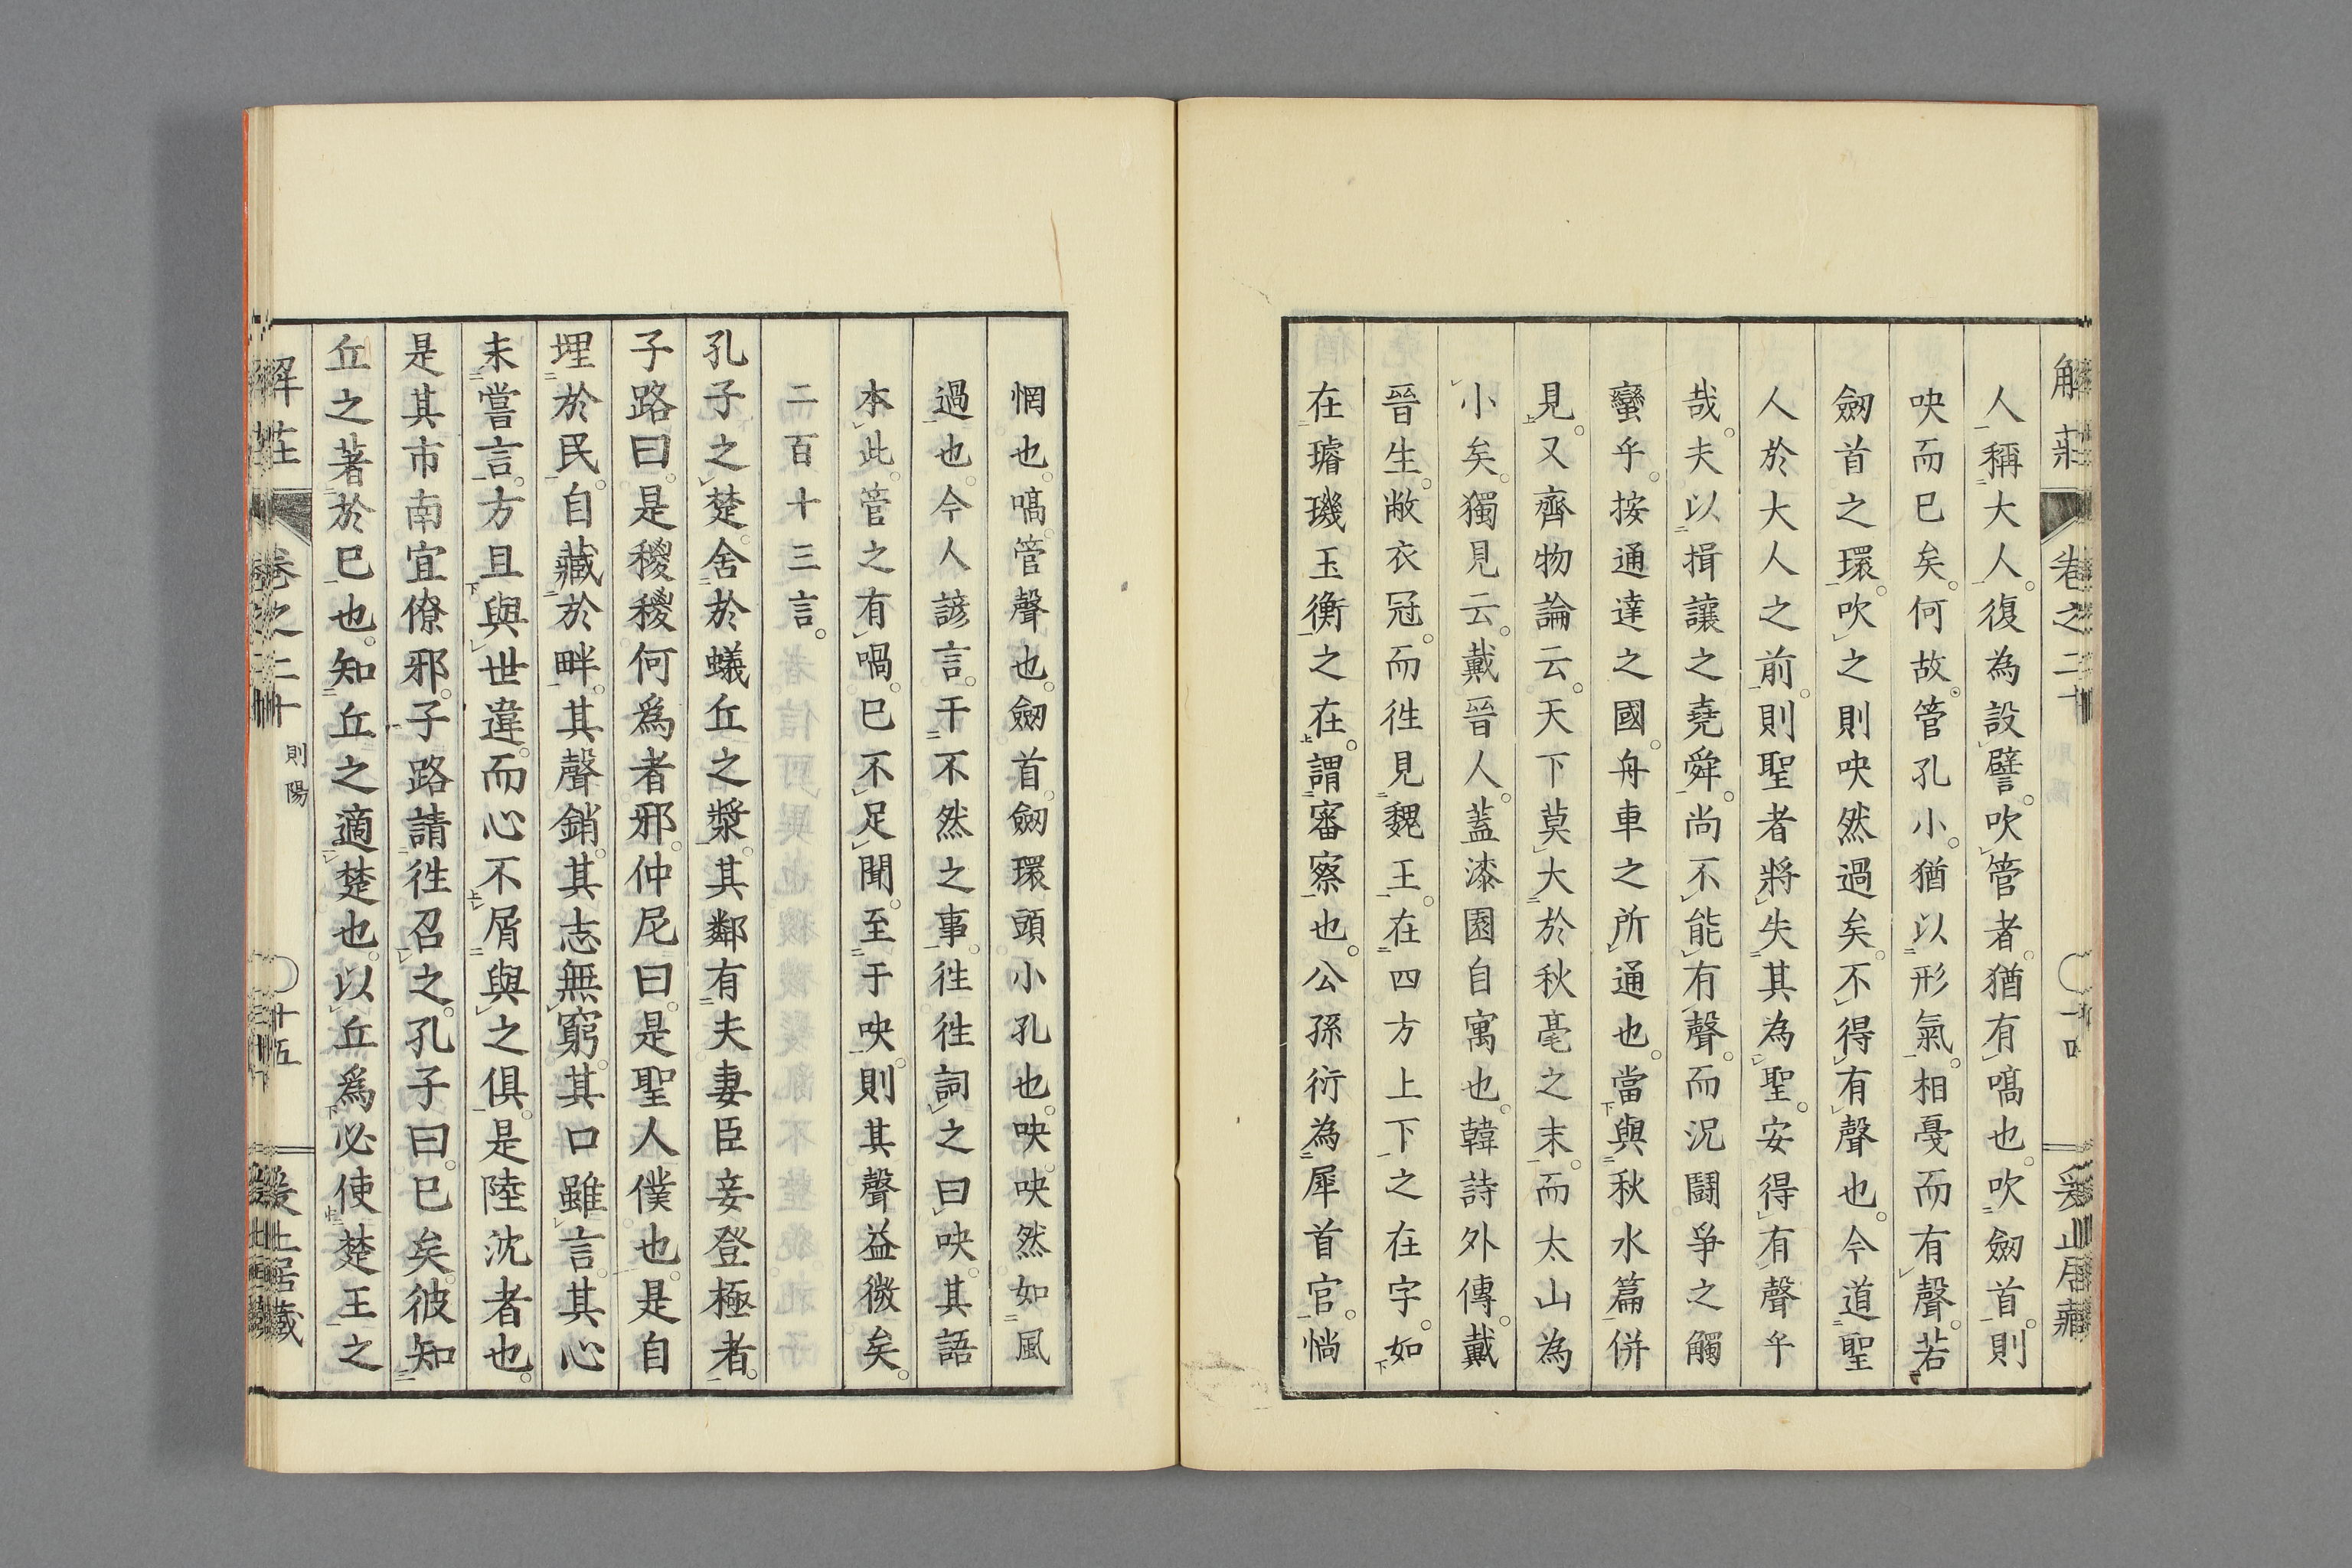 人稱大人。復為設譬。吹管者。猶有嗃也。吹劒首。則
吷而巳矣。何故。管孔小。猶以形氣。相戞而有聲。若
劒首之環。吹之則吷然過矣。不得有聲也。今道聖
人於大人之前。則聖者將失其為聖。安得有聲乎
哉。夫以揖讓之堯舜。尚不能有聲。而況鬪爭之觸
蠻乎。按通達之國。舟車之所通也。當與秋水篇併
見。又齊物論云。天下莫大於秋毫之末。而太山為
小矣。獨見云。戴晉人。蓋漆園自寓也。韓詩外傳。戴
晉生。敝衣冠。而徃見魏王。在四方上下之在字。如
在璿璣玉衡之在。謂審察也。公孫衍為犀首官。惝
惘也。嗃。管聲也。劒首。劒環頭小孔也。吷。吷然如風
過也。今人諺言。干不然之事。徃徃詞之曰吷。其語
本此。管之有喎。巳不足聞。至于吷。則其聲益微矣。
二百十三言。
孔子之楚。舍於蟻丘之漿。其鄰有夫妻臣妾登極者。
子路曰。是稯稯何爲者邪。仲尼曰。是聖人僕也。是自
埋於民。自藏於畔。其聲銷。其志無窮。其口雖言。其心
未嘗言。方且與世違。而心不屑與之俱。是陸沈者也。
是其市南宜僚邪。子路請徃召之。孔子曰。巳矣。彼知
丘之著於巳也。知丘之適楚也。以丘爲必使楚王之
則陽
十五